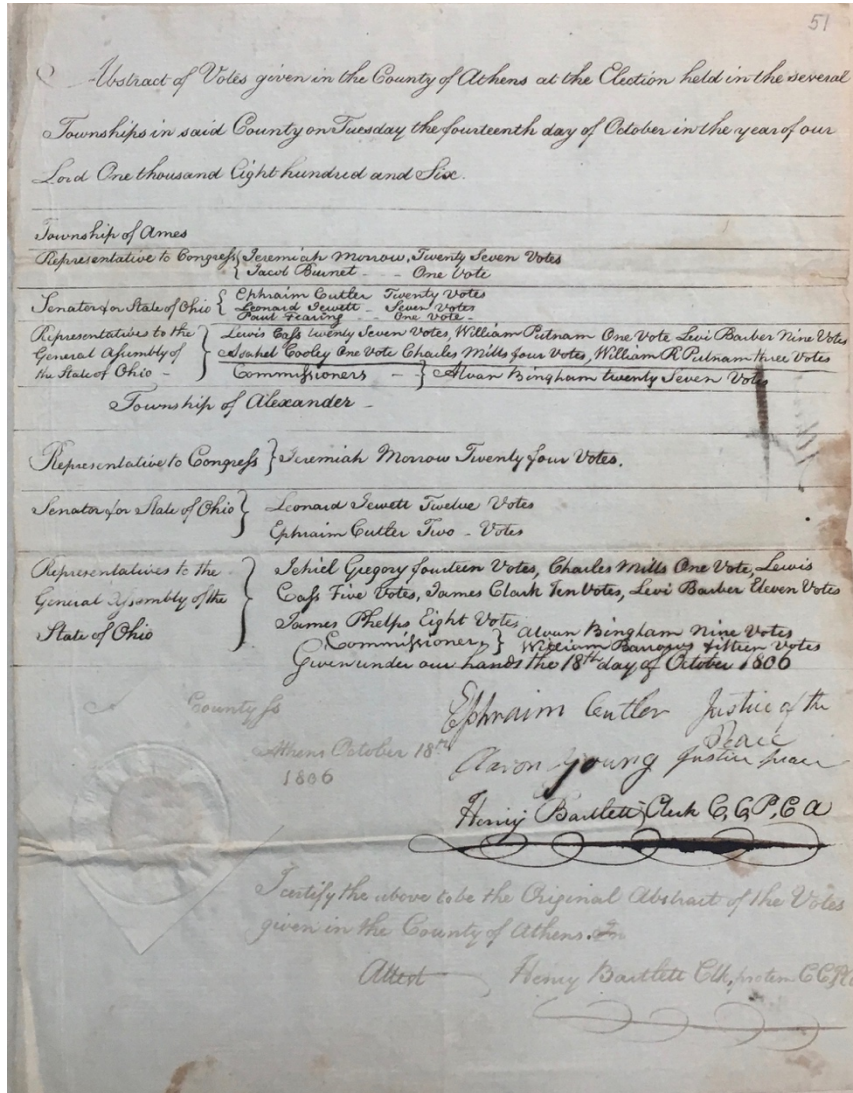 51
Abstract of Votes given in the County of Athens at the Election held in the several
Townships in said County on Tuesday the fourteenth day of October in the year of our
Lord One thousand Eight hundred and Six.
Township of Ames
Representative to Congress { Jeremiah Morrow, Twenty Seven Votes
{ Jacob Burnet - - - One Vote
Senator for State of Ohio { Ephraim Cutler Twenty Votes
Leonard Jewett - Seven Votes
Paul Fearing - One Vote -
Representatives to the General Assembly of the State of Ohio - } Lewis Cass twenty Seven Votes, William Putnam One Vote Levi Barber Nine Votes
Asahel Cooley One Vote Charles Mills four Votes, William R Putnam three Votes
Commissioners - - } Alvan Bingham twenty Seven Votes
Township of Alexander -
Representative to Congress } Jeremiah Morrow Twenty four Votes.
Senator for State of Ohio } Leonard Jewett Twelve Votes
Ephraim Cutler Two - Votes
Representatives to the General Assembly of the State of Ohio } Jehiel Gregory fourteen Votes, Charles Mills One Vote, Lewis
Cass Five Votes, James Clark Ten Votes, Levi Barber Eleven Votes
James Phelps Eight Votes
Commissioners } Alvan Bingham Nine Votes
William Barrows fifteen Votes
Given under our hands the 18th day of October 1806
Ephraim Cutler Justice of the
Peace
Aaron Young Justice peace
Henry Bartlett Clerk C, C, P, C A
County ss
Athens October 18th
1806
I certify the above to be the Original Abstract of the Votes
given in the County of Athens.
Attest Henry Bartlett Clk, protem